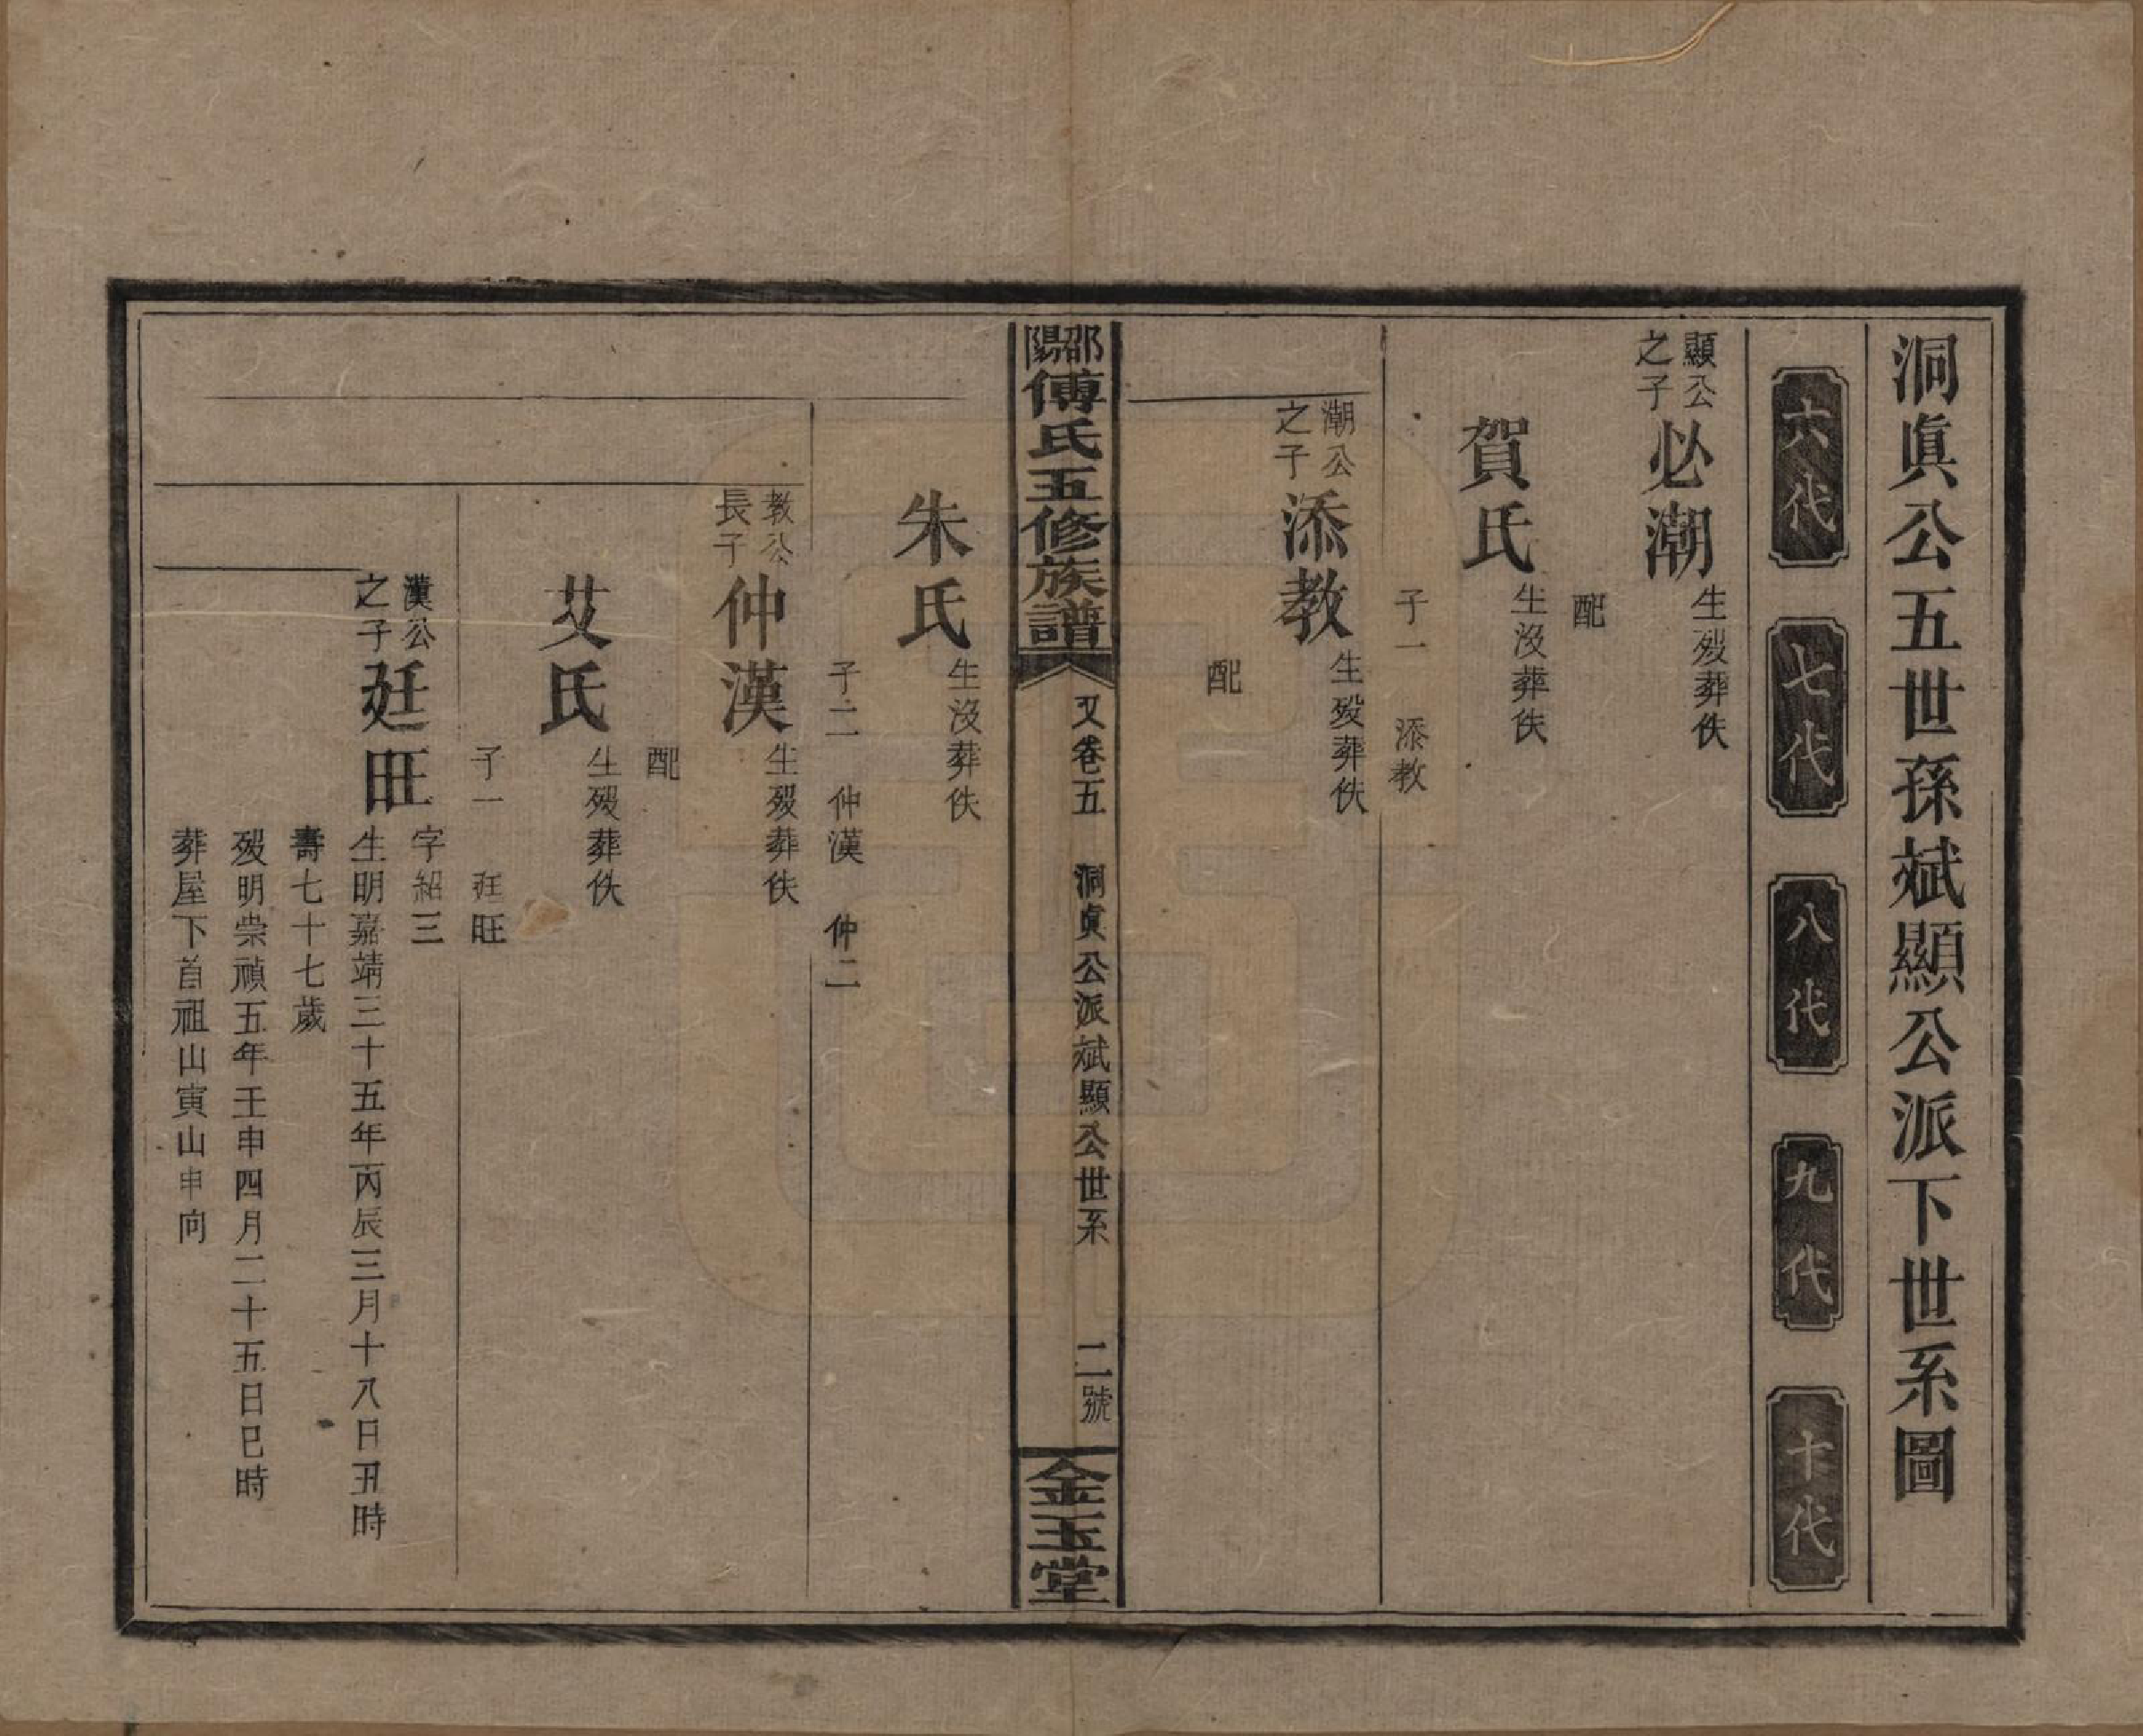 洞眞公五世孫斌顯公派下世系圖
六代
七代
八代
九代
十代
顯公
之子
必潮
生歿葬佚
配
賀氏
生沒葬佚
子一　添教
潮公
之子
添教
生歿葬佚
配
邵陽傅氏五修族譜
又卷五　洞眞公派斌顯公世系
二號
金玉堂
朱氏
生沒葬佚
子二　仲漢　仲二
教公
長子
仲漢
生歿葬佚
配
艾氏
生歿葬佚
子一　廷旺
漢公
之子
廷旺
字紹三
生明嘉靖三十五年丙辰三月十八日丑時
壽七十七歲
歿明崇禎五年壬申四月二十五日巳時
葬屋下首祖山寅山申向